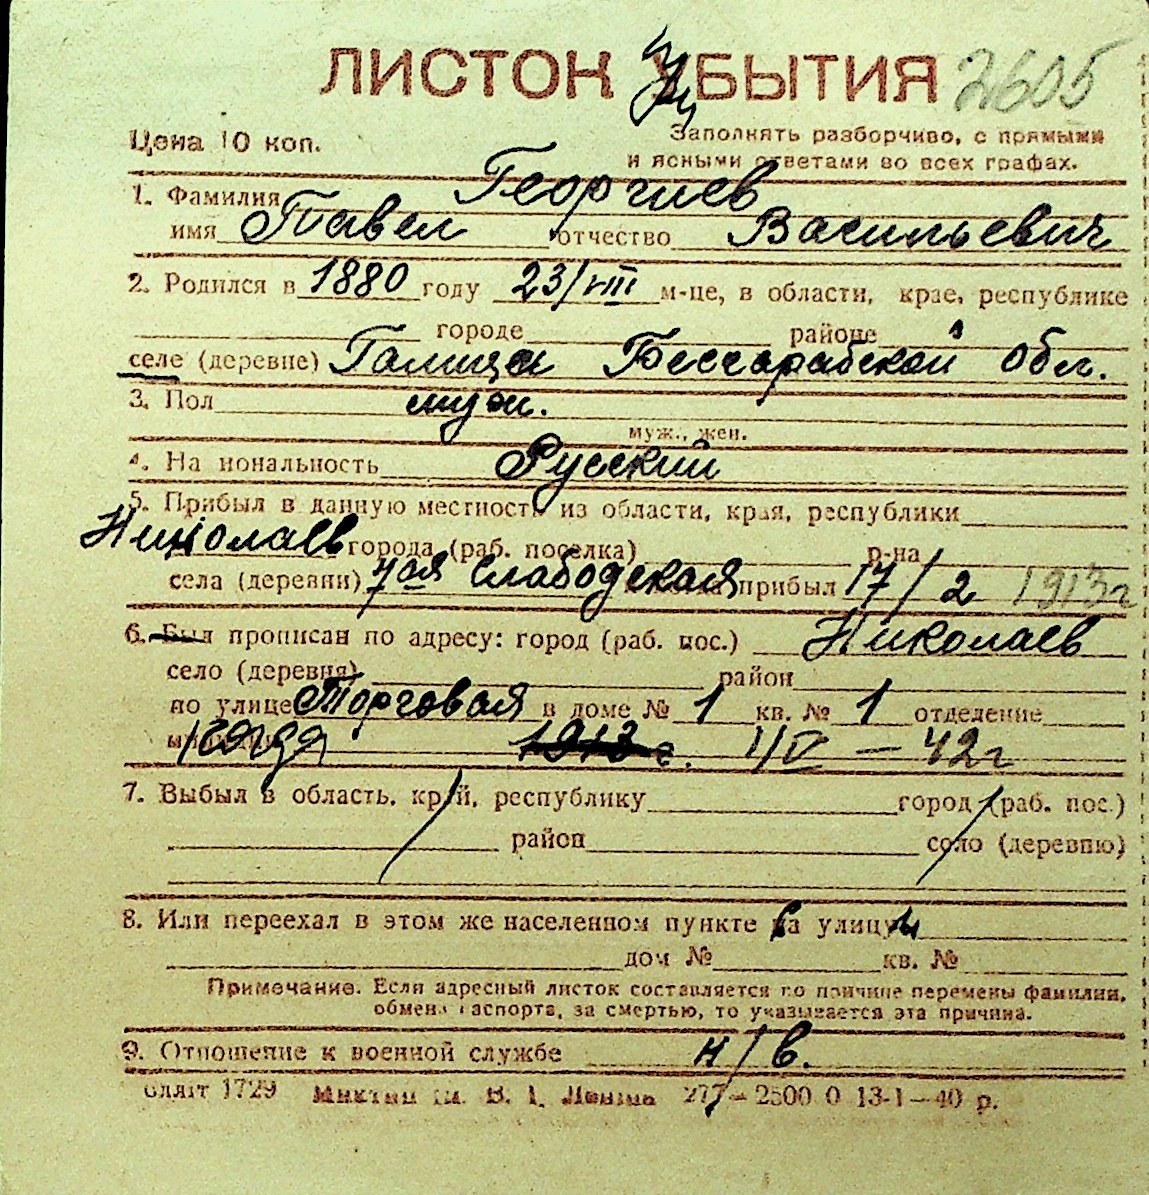 ЛИСТОК УБЫТИЯ 2605
Цена 10 коп.
Заполнять разборчиво, с прямыми
и ясными ответами во всех графах.
1. Фамилия Георгиев
имя Павел отчество Васильевич
2. Родился в 1880 году 23/VIII м-це, в области, крае, республике
городе районе
селе (деревне) Галица Бессарабской обл.
3. Пол муж.
муж., жен.
4. Национальность Русский
5. Прибыл в данную местность из области, края, республики
Николаев города (раб. поселка) р-на
села (деревни) 7ая Слабодская прибыл 17/2 1913г
6. Был прописан по адресу: город (раб. пос.) Николаев
село (деревня) район
по улице Торговая в доме № 1 кв. № 1 отделение
когда 1913г. 1/IV — 42г
7. Выбыл в область, край, республику город (раб. пос.)
район село (деревню)
8. Или переехал в этом же населенном пункте на улицу
дом № кв. №
Примечание. Если адресный листок составляется по причине перемены фамилии,
обмена паспорта, за смертью, то указывается эта причина.
9. Отношение к военной службе н/в.
1729 В. І. Леніна 277—2500 0 13-1—40 р.